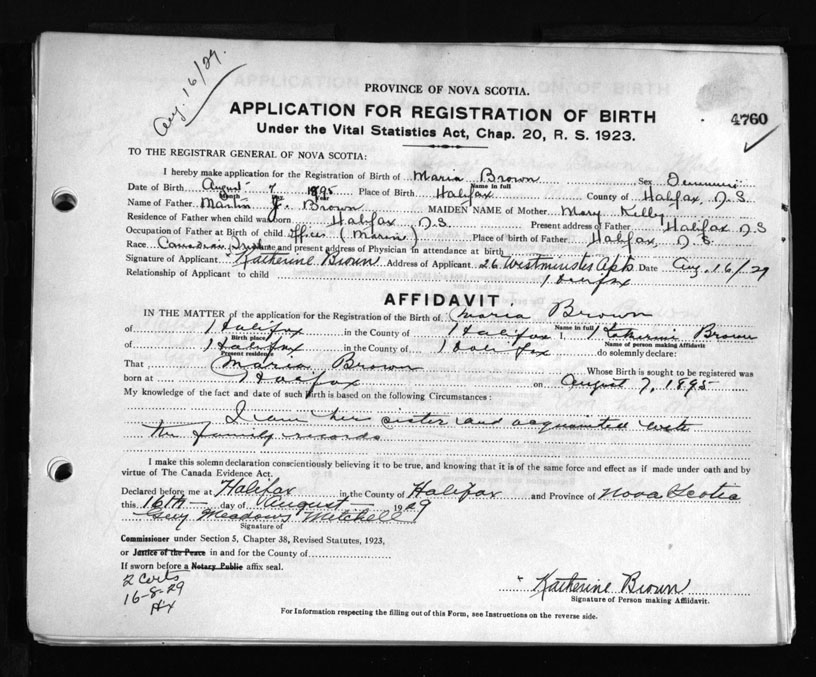 Aug. 16/29.
PROVINCE OF NOVA SCOTIA.
APPLICATION FOR REGISTRATION OF BIRTH
4760
Under the Vital Statistics Act, Chap. 20, R. S. 1923.
TO THE REGISTRAR GENERAL OF NOVA SCOTIA:
I hereby make application for the Registration of Birth of Maria Brown Sex
Name in full
Date of Birth August 7 1895 Place of Birth Halifax County of Halifax, N.S
Month Day Year
Name of Father Martin J. Brown MAIDEN NAME of Mother Mary Kelly
Residence of Father when child was born Halifax N.S. Present address of Father Halifax N.S
Occupation of Father at Birth of child Officer (Marine) Place of birth of Father Halifax, N.S.
Race Canadian Name and present address of Physician in attendance at birth
Signature of Applicant Katherine Brown Address of Applicant 26 Westminster Apts Date Aug. 16/29
Relationship of Applicant to child Halifax
AFFIDAVIT.
IN THE MATTER of the application for the Registration of the Birth of Maria Brown
Name in full
of Halifax in the County of Halifax I, Katherine Brown
Birth place Name of person making Affidavit
of Halifax in the County of Halifax do solemnly declare:
Present residence
That Maria Brown Whose Birth is sought to be registered was
born at Halifax on August 7, 1895
My knowledge of the fact and date of such Birth is based on the following Circumstances:
I am her sister and acquainted with
the family records
I make this solemn declaration conscientiously believing it to be true, and knowing that it is of the same force and effect as if made under oath and by
virtue of The Canada Evidence Act.
Declared before me at Halifax in the County of Halifax and Province of Nova Scotia
this 16th day of August 1929
Guy Meadows Mitchell
Signature of
Commissioner under Section 5, Chapter 38, Revised Statutes, 1923,
or Justice of the Peace in and for the County of
If sworn before a Notary Public affix seal.
2 Certs
16-8-29
Hx
Katherine Brown
Signature of Person making Affidavit.
For Information respecting the filling out of this Form, see Instructions on the reverse side.